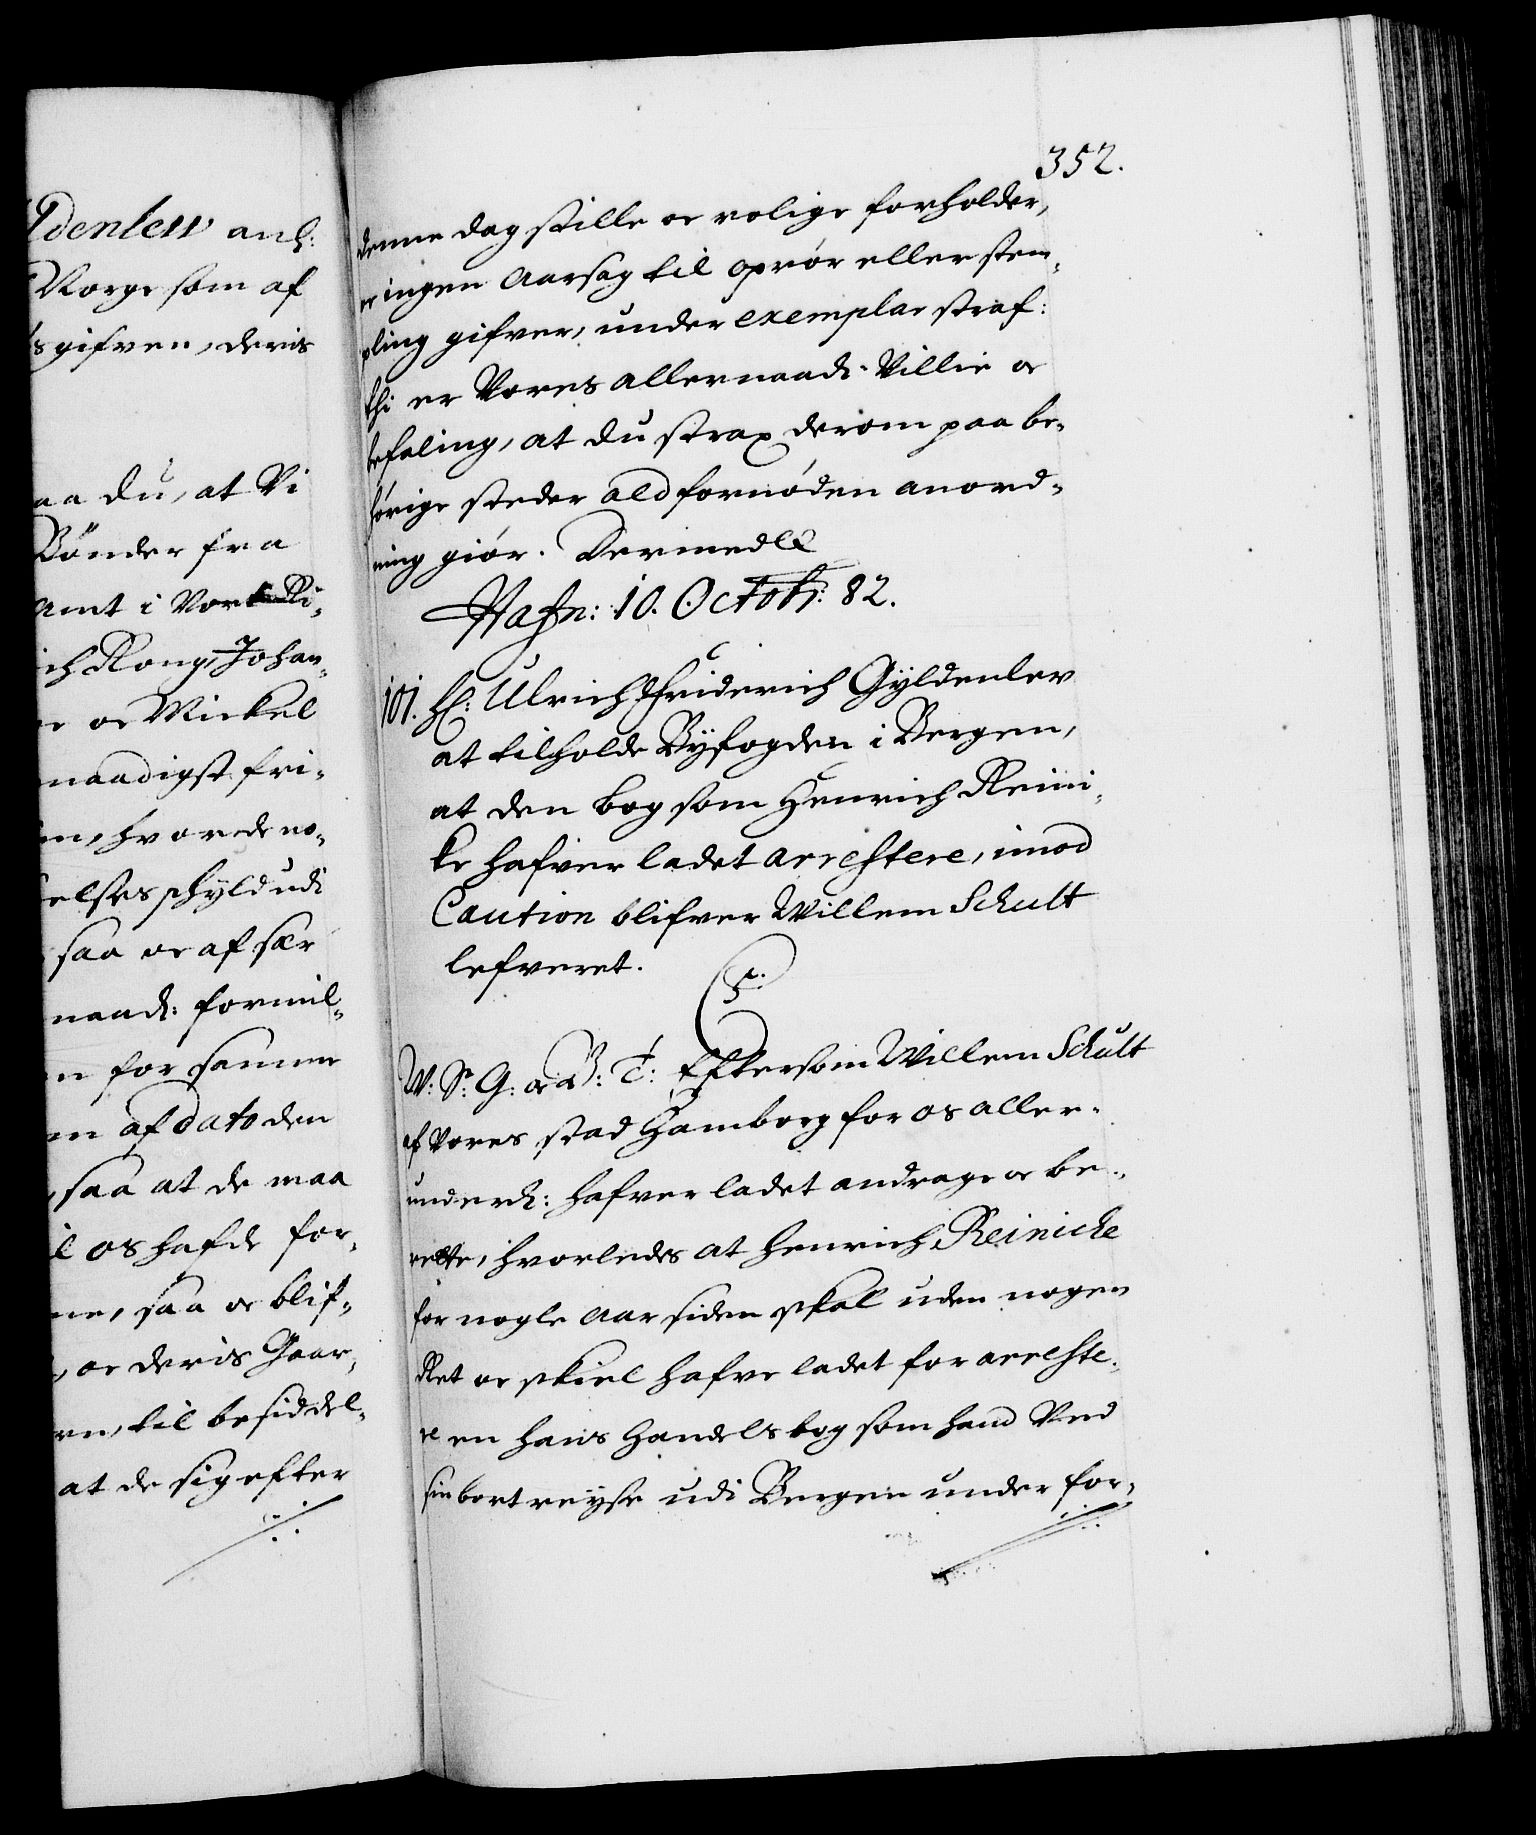 ldenlew anl:
Norge som af
s gifven, deris
aa du, at Vi
Bönder fra
Amt i Vort Ri¬
ich Kong, Johan¬
e oc Mickel
naadigst fri¬
en, hvor de no¬
elses schyld udi
saa oc af sær
naadl: formil¬
n for samme
m af dato den
, saa at de maa
l os hafde for¬
ne, saa oc blif¬
, oc deris Gaar¬
rn, til besiddel¬
at de sig efter
352.
denne dag stille oc rolige forholder,
oc ingen Aarsag til oprör eller stem¬
pling gifver, under exemplar straf:
thi er Vores allernaadl: Villie oc
befaling, at du strax derom paa be¬
hörige steder ald fornöden anord¬
ning giör. Dermed etc
Hafn: 10. Octobr: 82.
101. Hr: Ulrich Friderich Gyldenlev
at tilholde Byfogden i Bergen,
at den bog som Henrich Reini¬
ke hafver ladet arrestere, imod
Caution blifver Willem Schult
lefveret.
C 5.
W: S: G: oc B: T: Eftersom Willem Schult
af Vores stad Hamborg for os aller¬
underdl: hafver ladet andrage oc be¬
rette, hvorledes at Henrich Reinicke
for nogle Aar siden skal uden nogen
Ret oc skiel hafve ladet for arreste¬
re en hans Handels bog som hand Ved
sin bortreyse udi Bergen under for¬